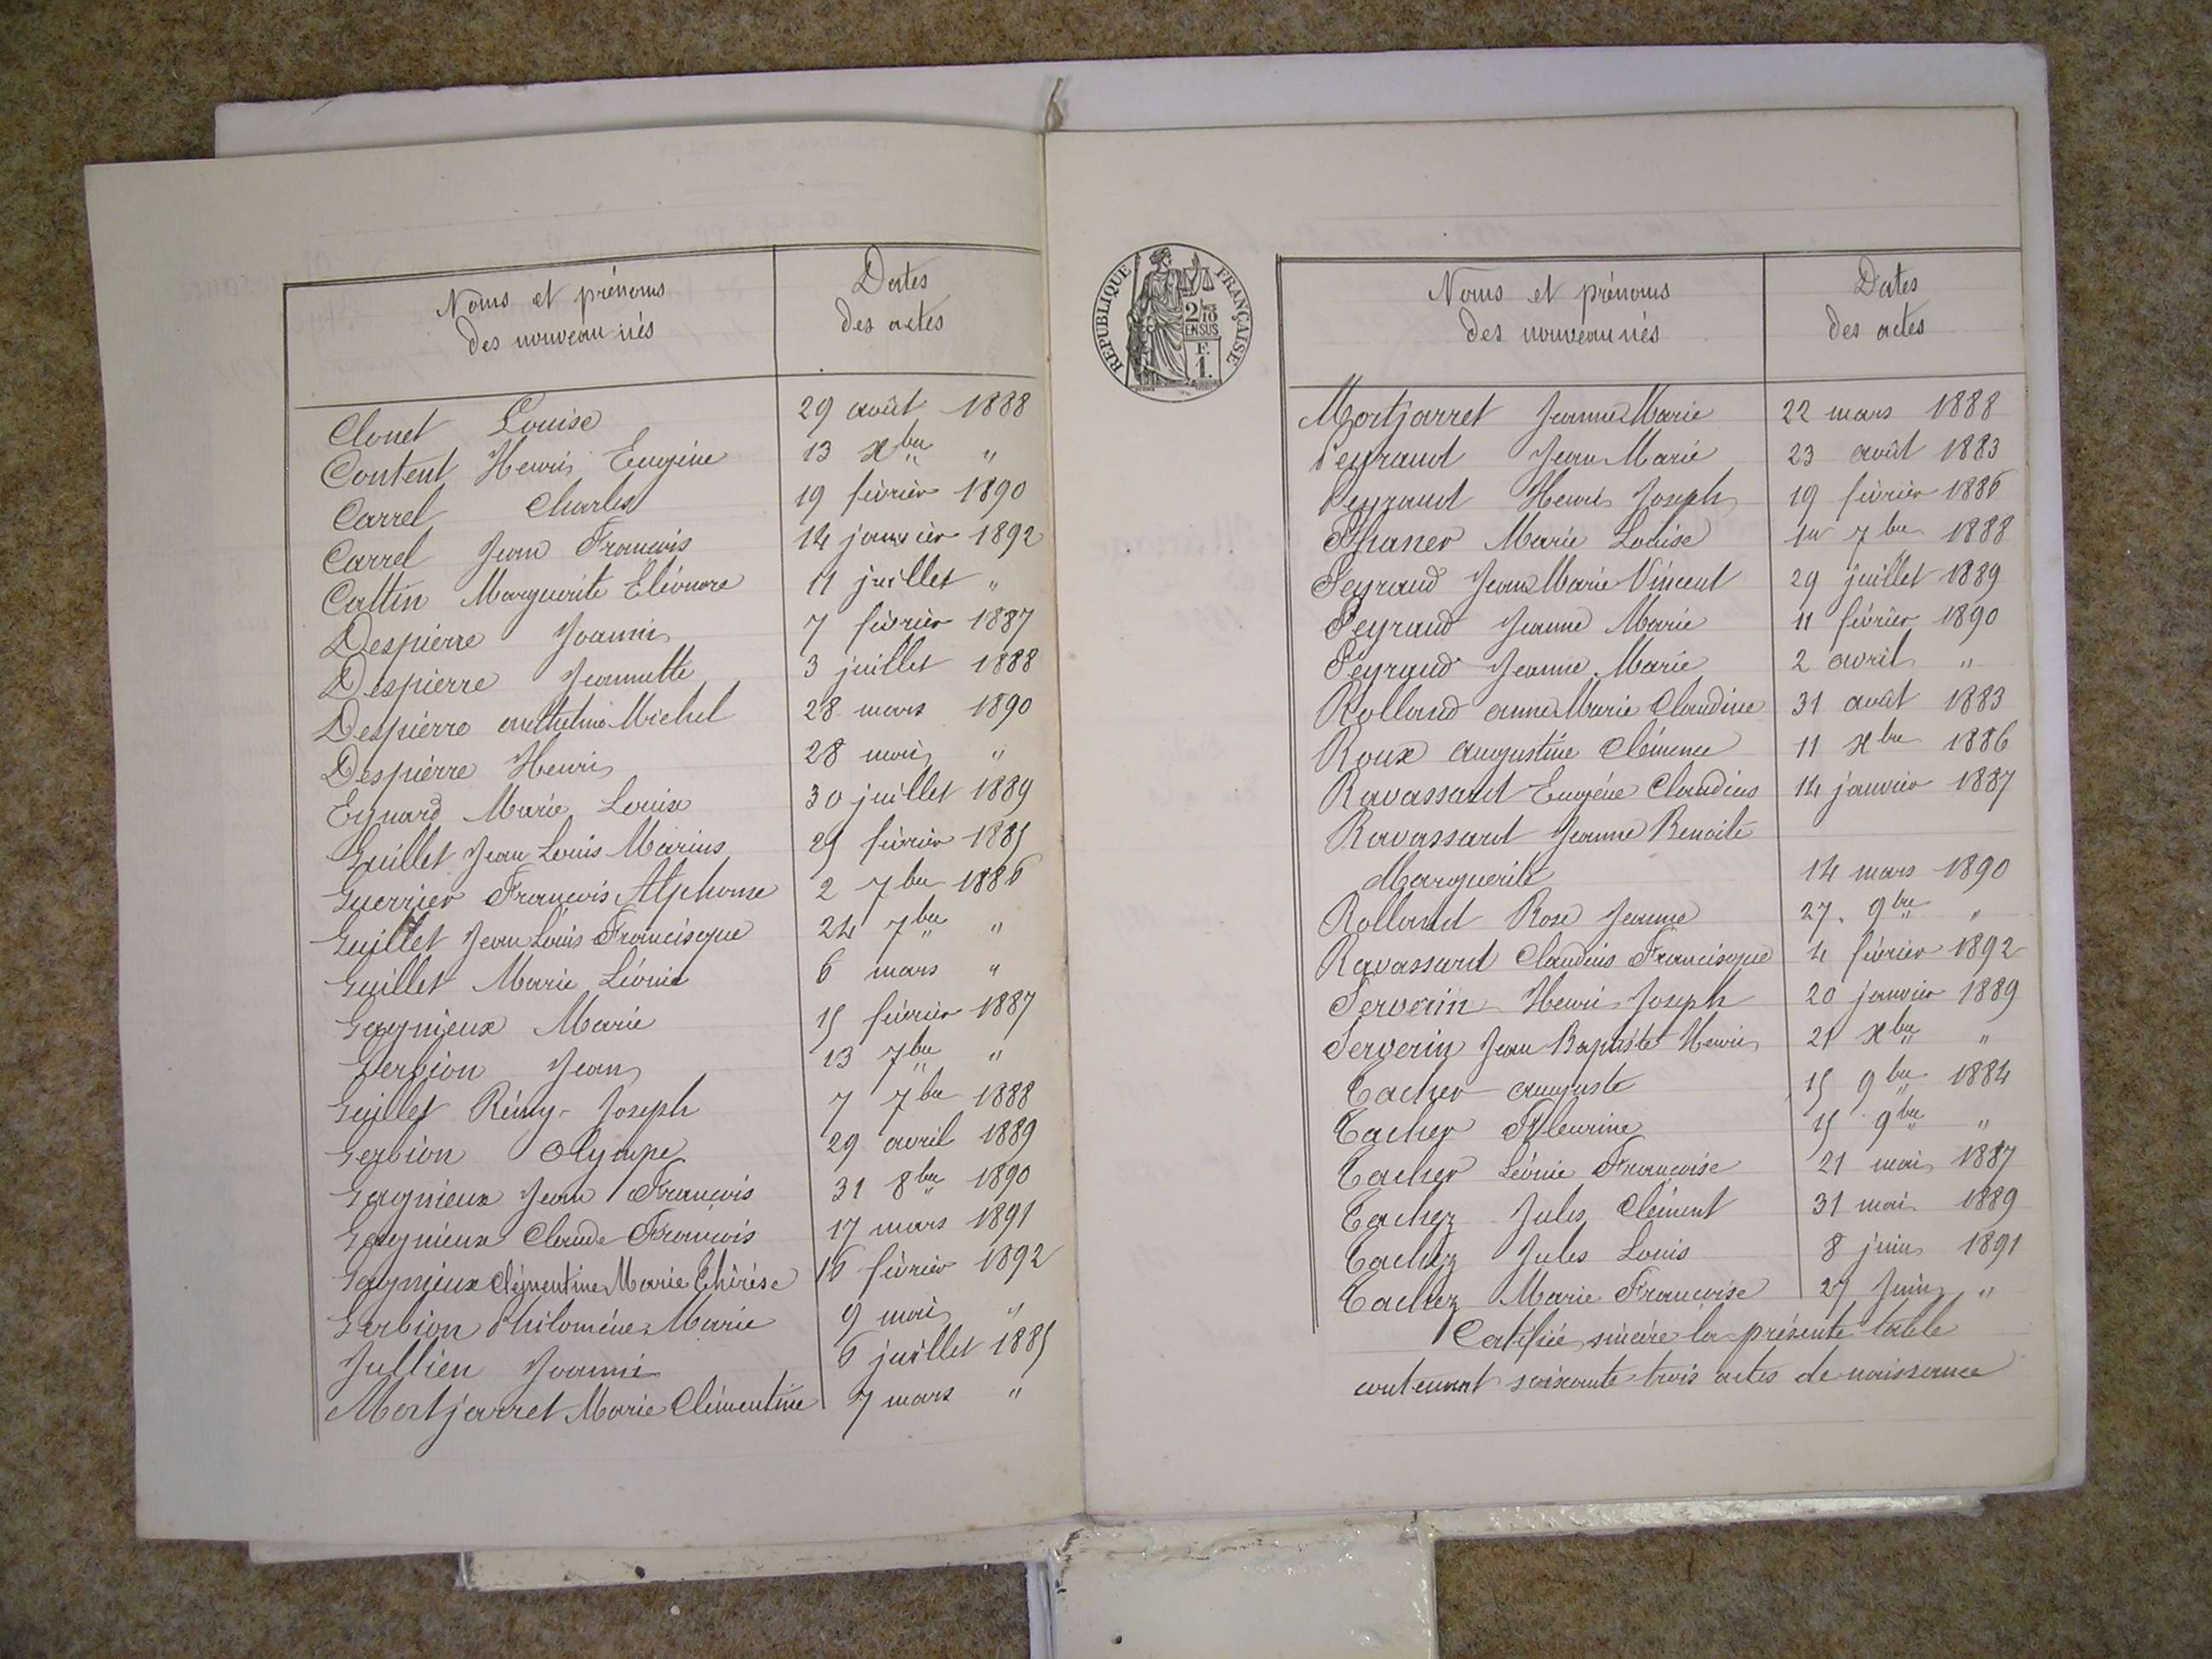 Noms et prénoms
des nouveau nés
Dates
des actes
Clonet Louise 29 août 1888
Content Henri Eugène 13 xbre "
Carrel Charles 19 février 1890
Carrel Jean François 14 janvier 1892
Cattin Marguerite Eléonore 11 juillet "
Despierre Joannin 7 février 1887
Despierre Jeannette 3 juillet 1888
Despierre anthelme Michel 28 mars 1890
Despierre Henri 28 mai "
Eynard Marie Louise 30 juillet 1889
Guillet Jean Louis Marius 25 février 1885
Guerrier François Alphonse 2 7bre 1886
Guillet Jean Louis Francisque 24 7bre "
Guillet Marie Léonie 6 mars "
Gagnieux Marie 15 février 1887
Gerbion Jean 13 7bre "
Guillet Rémy Joseph 7 7bre 1888
Gerbion Olympe 29 avril 1889
Gagnieux Jean François 31 8bre 1890
Gagnieux Claude François 17 mars 1891
Gagnieux Clémentine Marie Thérèse 16 février 1892
Gerbion Philomène Marie 9 mai "
Jullien Joanni 6 juillet 1885
Mortjarret Marie Clémentine 7 mars "
REPUBLIQUE FRANÇAISE
2/10
EN SUS
F.
1.
Noms et prénoms
des nouveau nés
Dates
des actes
Mortjarret Jeanne Marie 22 mars 1888
Peyraud Jean Marie 23 août 1883
Peyraud Henri Joseph 19 février 1886
Marie Louise 1er 7bre 1888
Peyraud Jean Marie Vincent 29 juillet 1889
Peyraud Jeanne Marie 11 février 1890
Peyraud Jeanne Marie 2 avril "
Rolland anne Marie Claudine 31 août 1883
Roux augustine Clémence 11 xbre 1886
Ravassard Eugène Claudius 14 janvier 1887
Ravassard Jeanne Benoite
Marguerite 14 mars 1890
Rolland Rose Jeanne 27 9bre "
Ravassard Claudius Francisque 4 février 1892
Serverin Henri Joseph 20 janvier 1889
Serverin Jean Baptiste Henri 21 xbre "
Tacher auguste 15 9bre 1884
Tacher Fleurine 15 9bre "
Tacher Léonie Françoise 21 mai 1887
Tachez Jules Clément 31 mai 1889
Tachez Jules Louis 8 juin 1891
Tachez Marie Françoise 27 Juin "
Certifiée sincère la présente table
contenant soixante trois actes de naissance